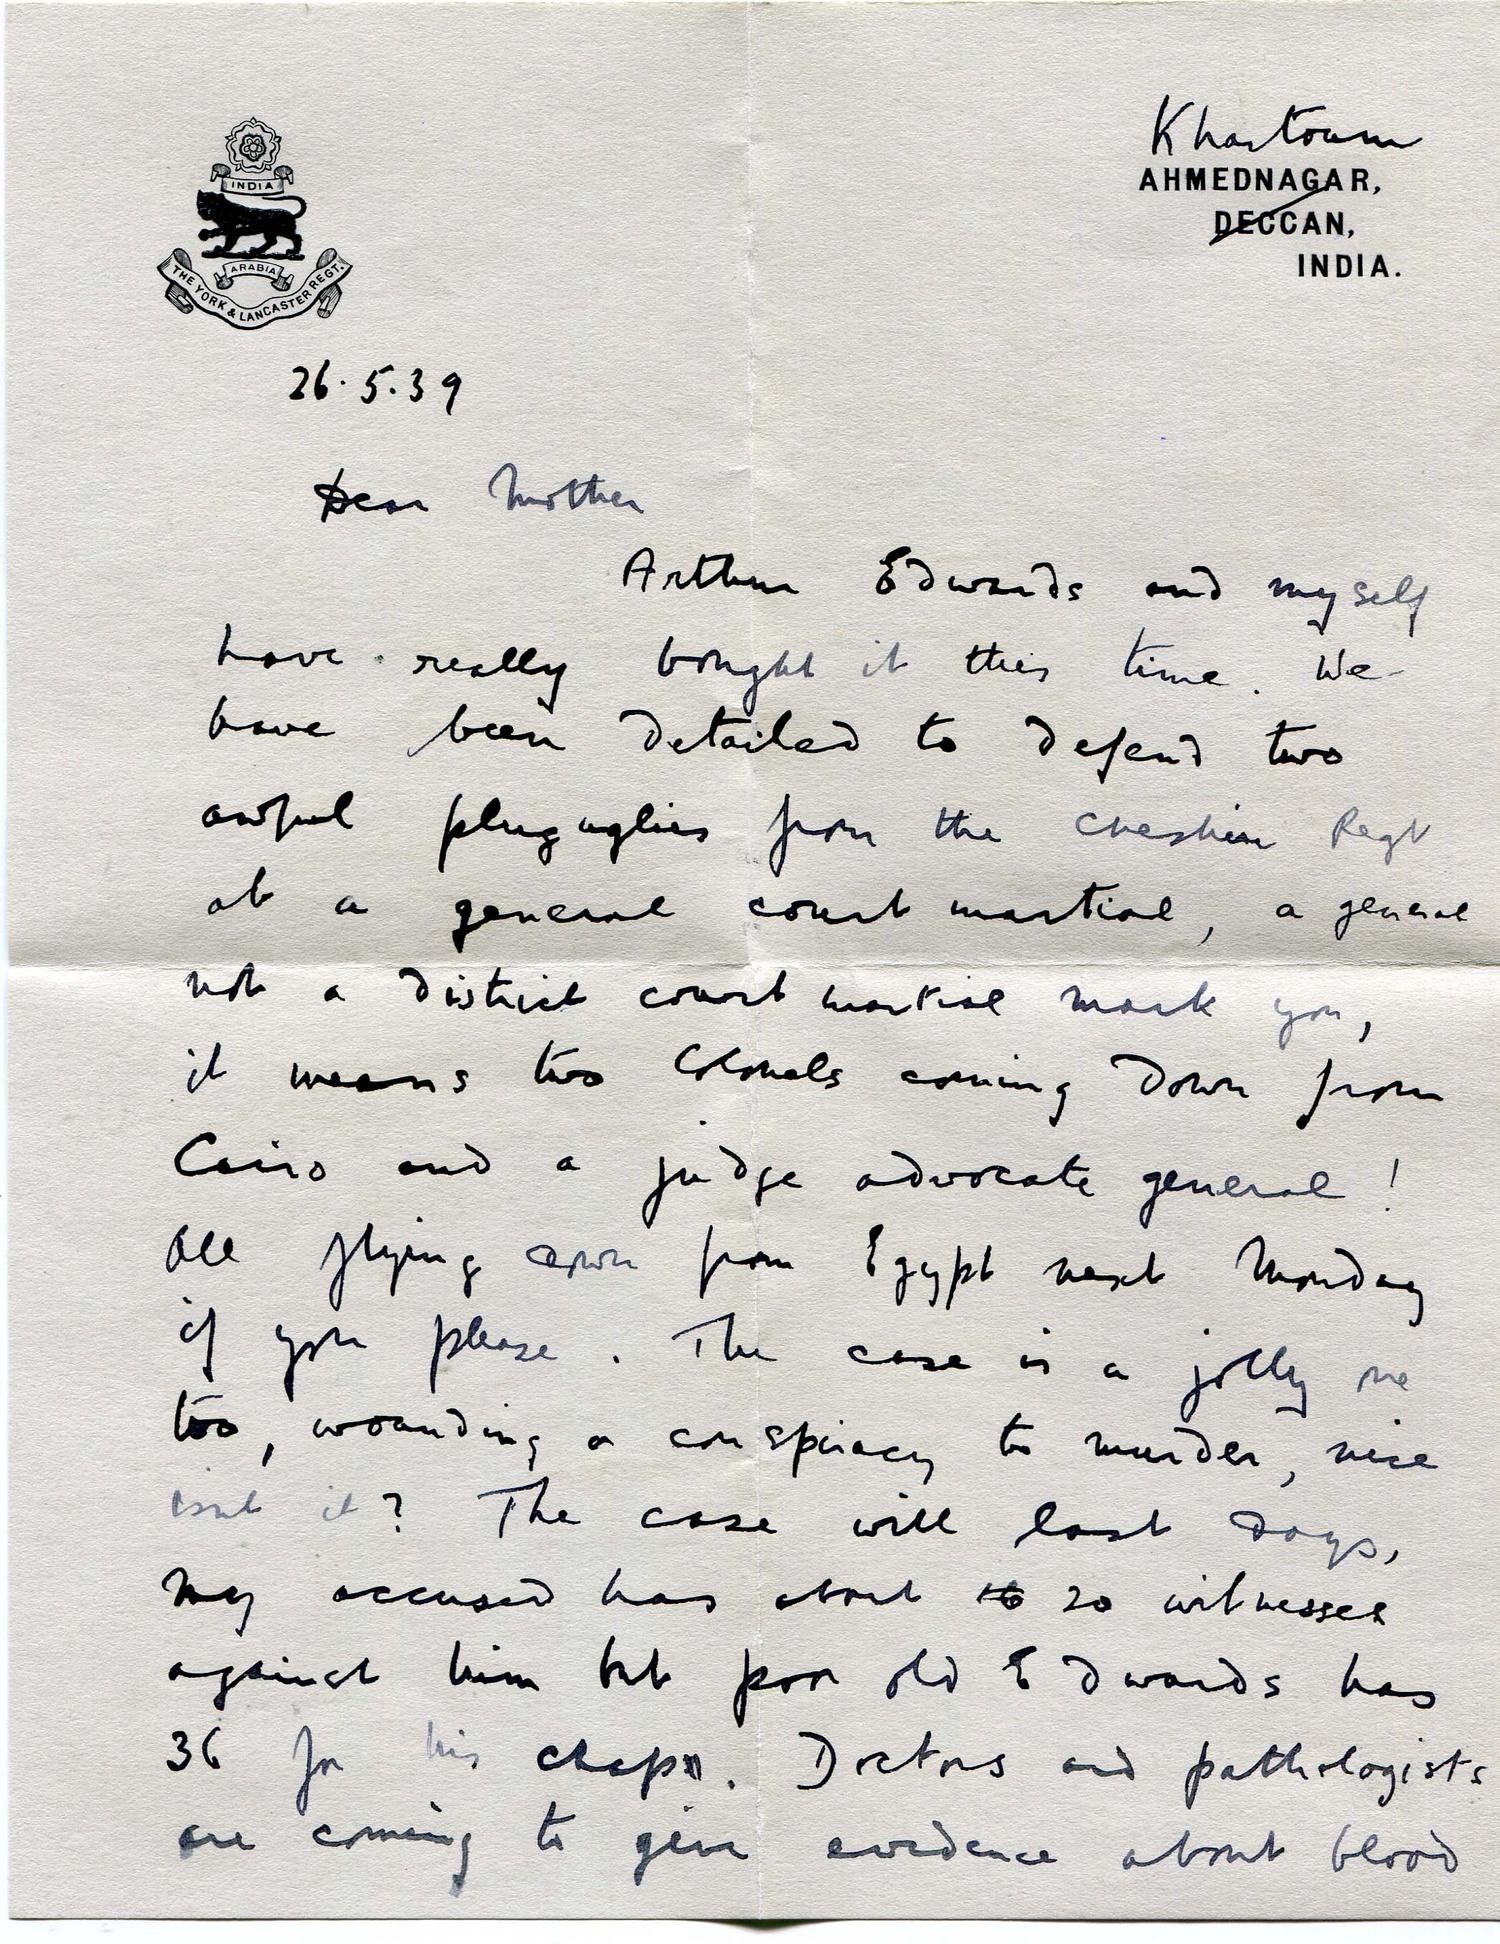 INDIA
ARABIA
THE YORK & LANCASTER REGT.
Khartoum
AHMEDNAGAR,
DECCAN,
INDIA.
26.5.39
Dear Mother
Arthur Edwards and myself
have really bought it this time. We
have been detailed to defend two
awful pluguglies from the Cheshire Regt
at a general court martial, a general
not a district court martial mark you,
it means two Colonels coming down from
Cairo and a judge advocate general!
All flying down from Egypt next Monday
if you please. The case is a jolly one
too, wounding & conspiracy to murder, nice
isnt it? The case will last days,
my accused has about 20 witnesses
against him but poor old Edwards has
36 for his chaps. Doctors and pathologists
are coming to give evidence about blood